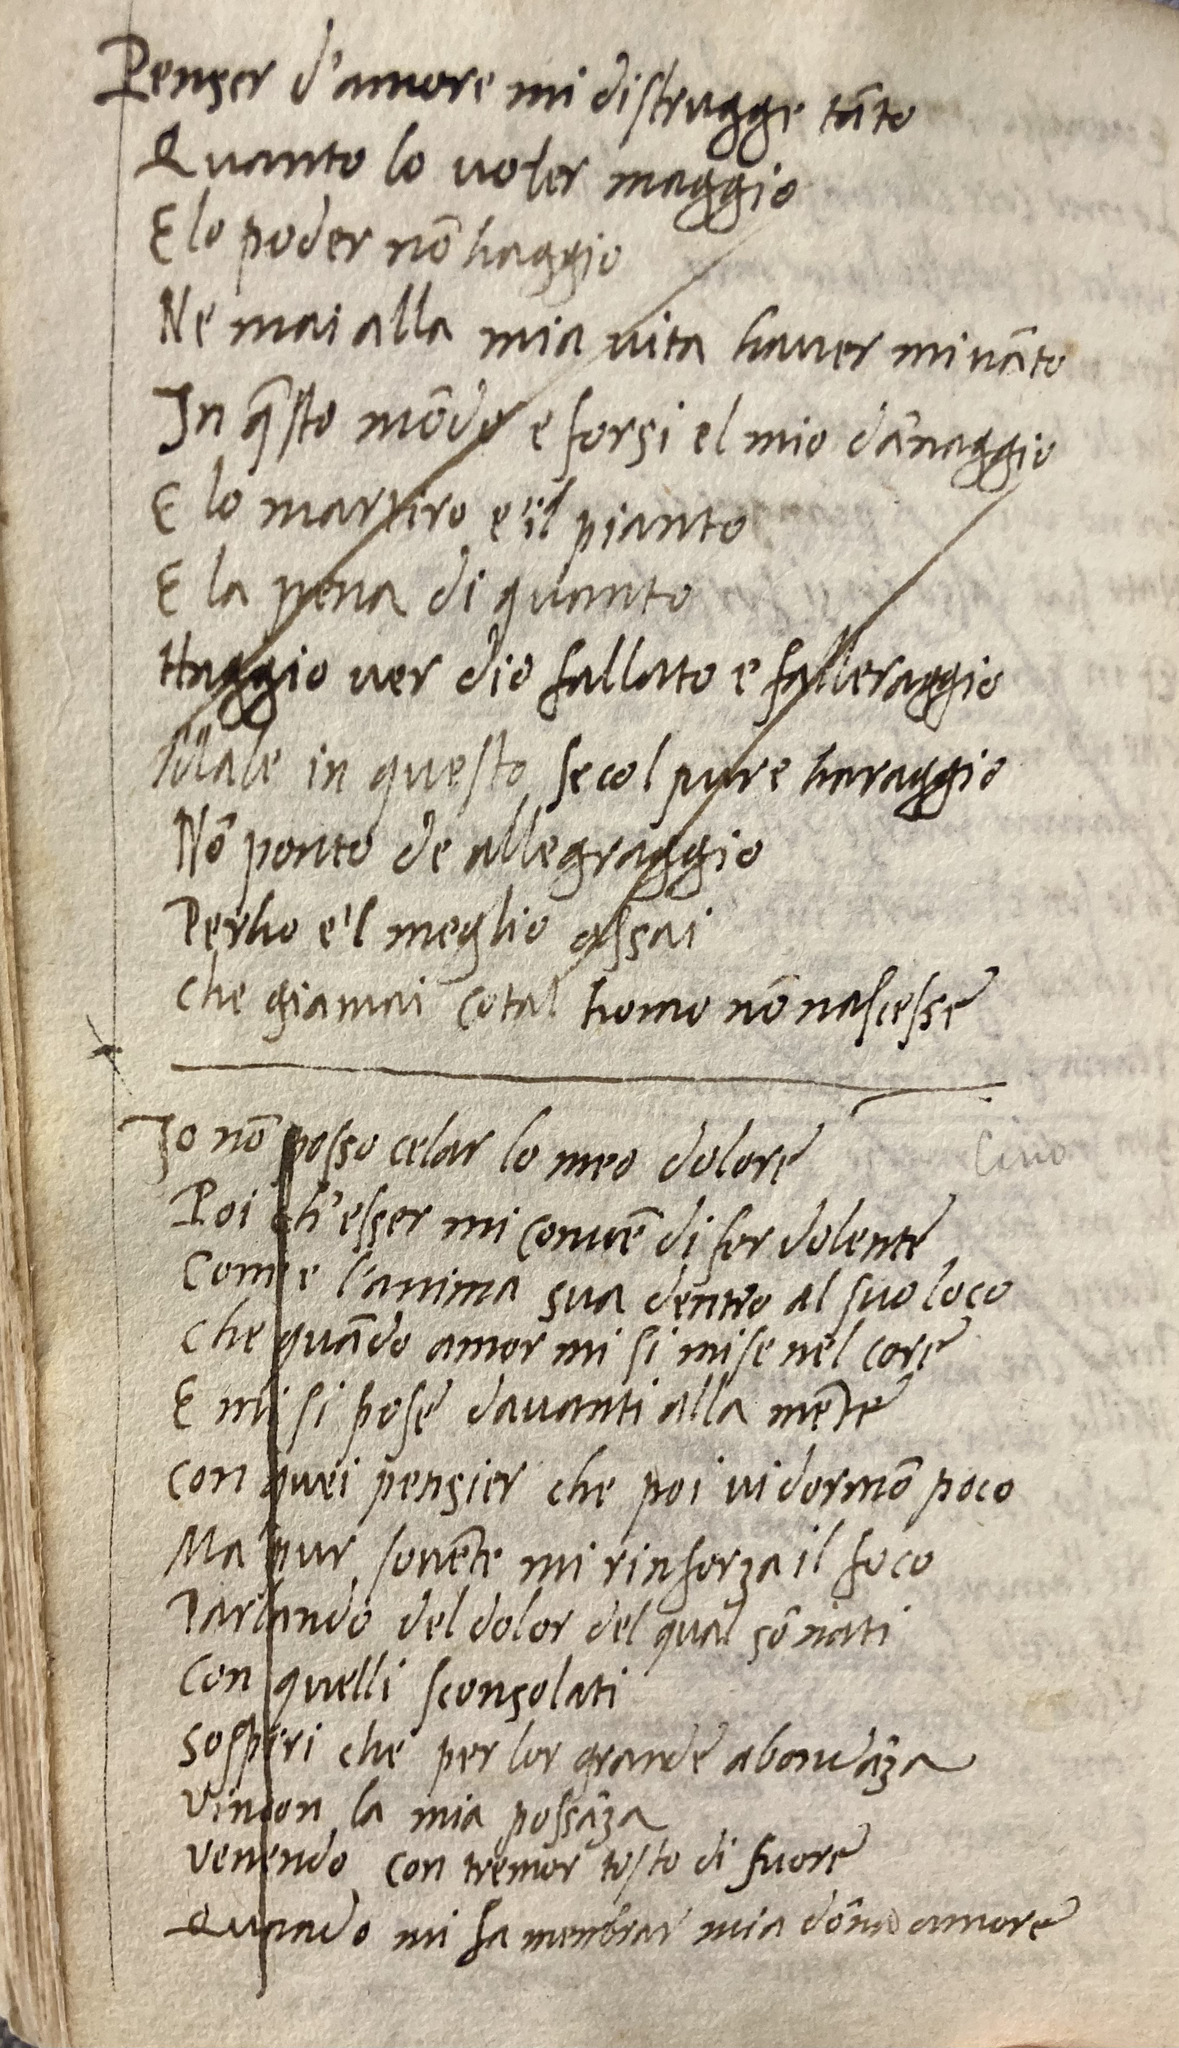 Penser d'amore mi distrugge tāto
Quanto lo voler maggio
E lo poder nō haggio
Ne mai alla mia vita haver mi vāto
In q̄sto mōdo e forsi el mio dānaggio
E lo martiro e'il pianto
E la pena di quanto
Haggio ver dio fallato e falleraggio
Male in questo secol pure haraggio
Nō ponto de allegraggio
Perho e'l meglio assai
che giamai cotal homo nō nascesse
Io nō posso celar lo meo dolore
Cino
Poi ch'esser mi convē di for dolente
Come l'anima sua dentro al suo loco
Che quādo amor mi si mise nel core
E mi si pose davanti alla mēte
Con quei pensier che poi vi dormō poco
Ma pur sovēte mi rinforza il foco
Parlando del dolor del qual sō nati
Con quelli sconsolati
Sospiri che per lor grande abondāza
Vincon la mia possāza
Venendo con tremor tosto di fuore
Quādo mi fa membrar mia dōna amore